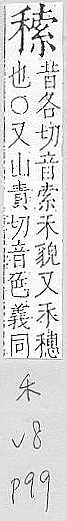 昔各切音索禾貌又禾穗
也○又山責切音色義同
禾
v8
p99